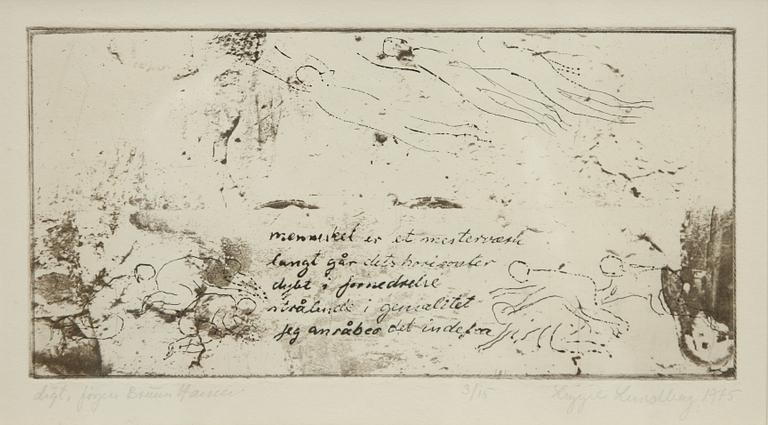 mennisket er et mesterværk
langt går dets horisonter
dybt i fornedrelse
i genialitet
jeg anråber det indefra
digt, Jørgen Bruun Hansen
3/15
Lundberg 1975